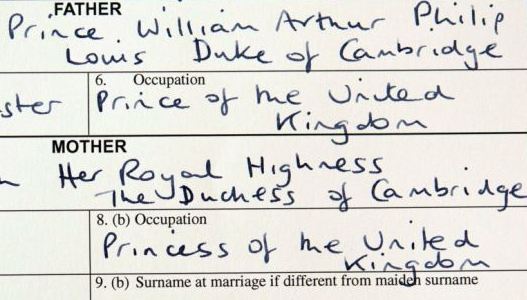 FATHER
Prince William Arthur Philip
Louis Duke of Cambridge
6. Occupation
ster Prince of the United
Kingdom
MOTHER
Her Royal Highness
The Duchess of Cambridge
8. (b) Occupation
Princess of the United
Kingdom
9. (b) Surname at marriage if different from maiden surname